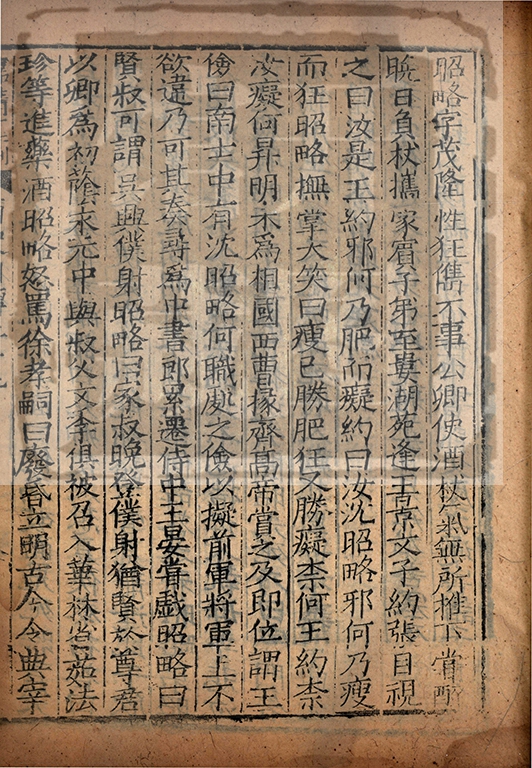 昭略字茂隆性狂雋不事公卿使酒杖氣無所推下嘗醉
晩日負杖攜家賔子弟至婁湖苑逢王景文子約張目視
之曰汝是王約邪何乃肥而癡約曰汝沈昭略邪何乃瘦
而狂昭略撫掌大笑曰瘦已勝肥狂又勝癡柰何王約柰
汝癡何昇明末爲相國西曹掾齊高帝賞之及即位謂王
儉曰南士中有沈昭略何職處之儉以擬前軍將軍上不
欲違乃可其奏尋爲中書郎累遷侍中王晏嘗戲昭略曰
賢叔可謂吳興僕射昭略曰家叔晚登僕射猶賢於尊君
以卿爲初䕃永元中與叔父文季俱被召入華林省茹法
珍等進藥酒昭略怒罵徐孝嗣曰廢昏立明古今令典宰